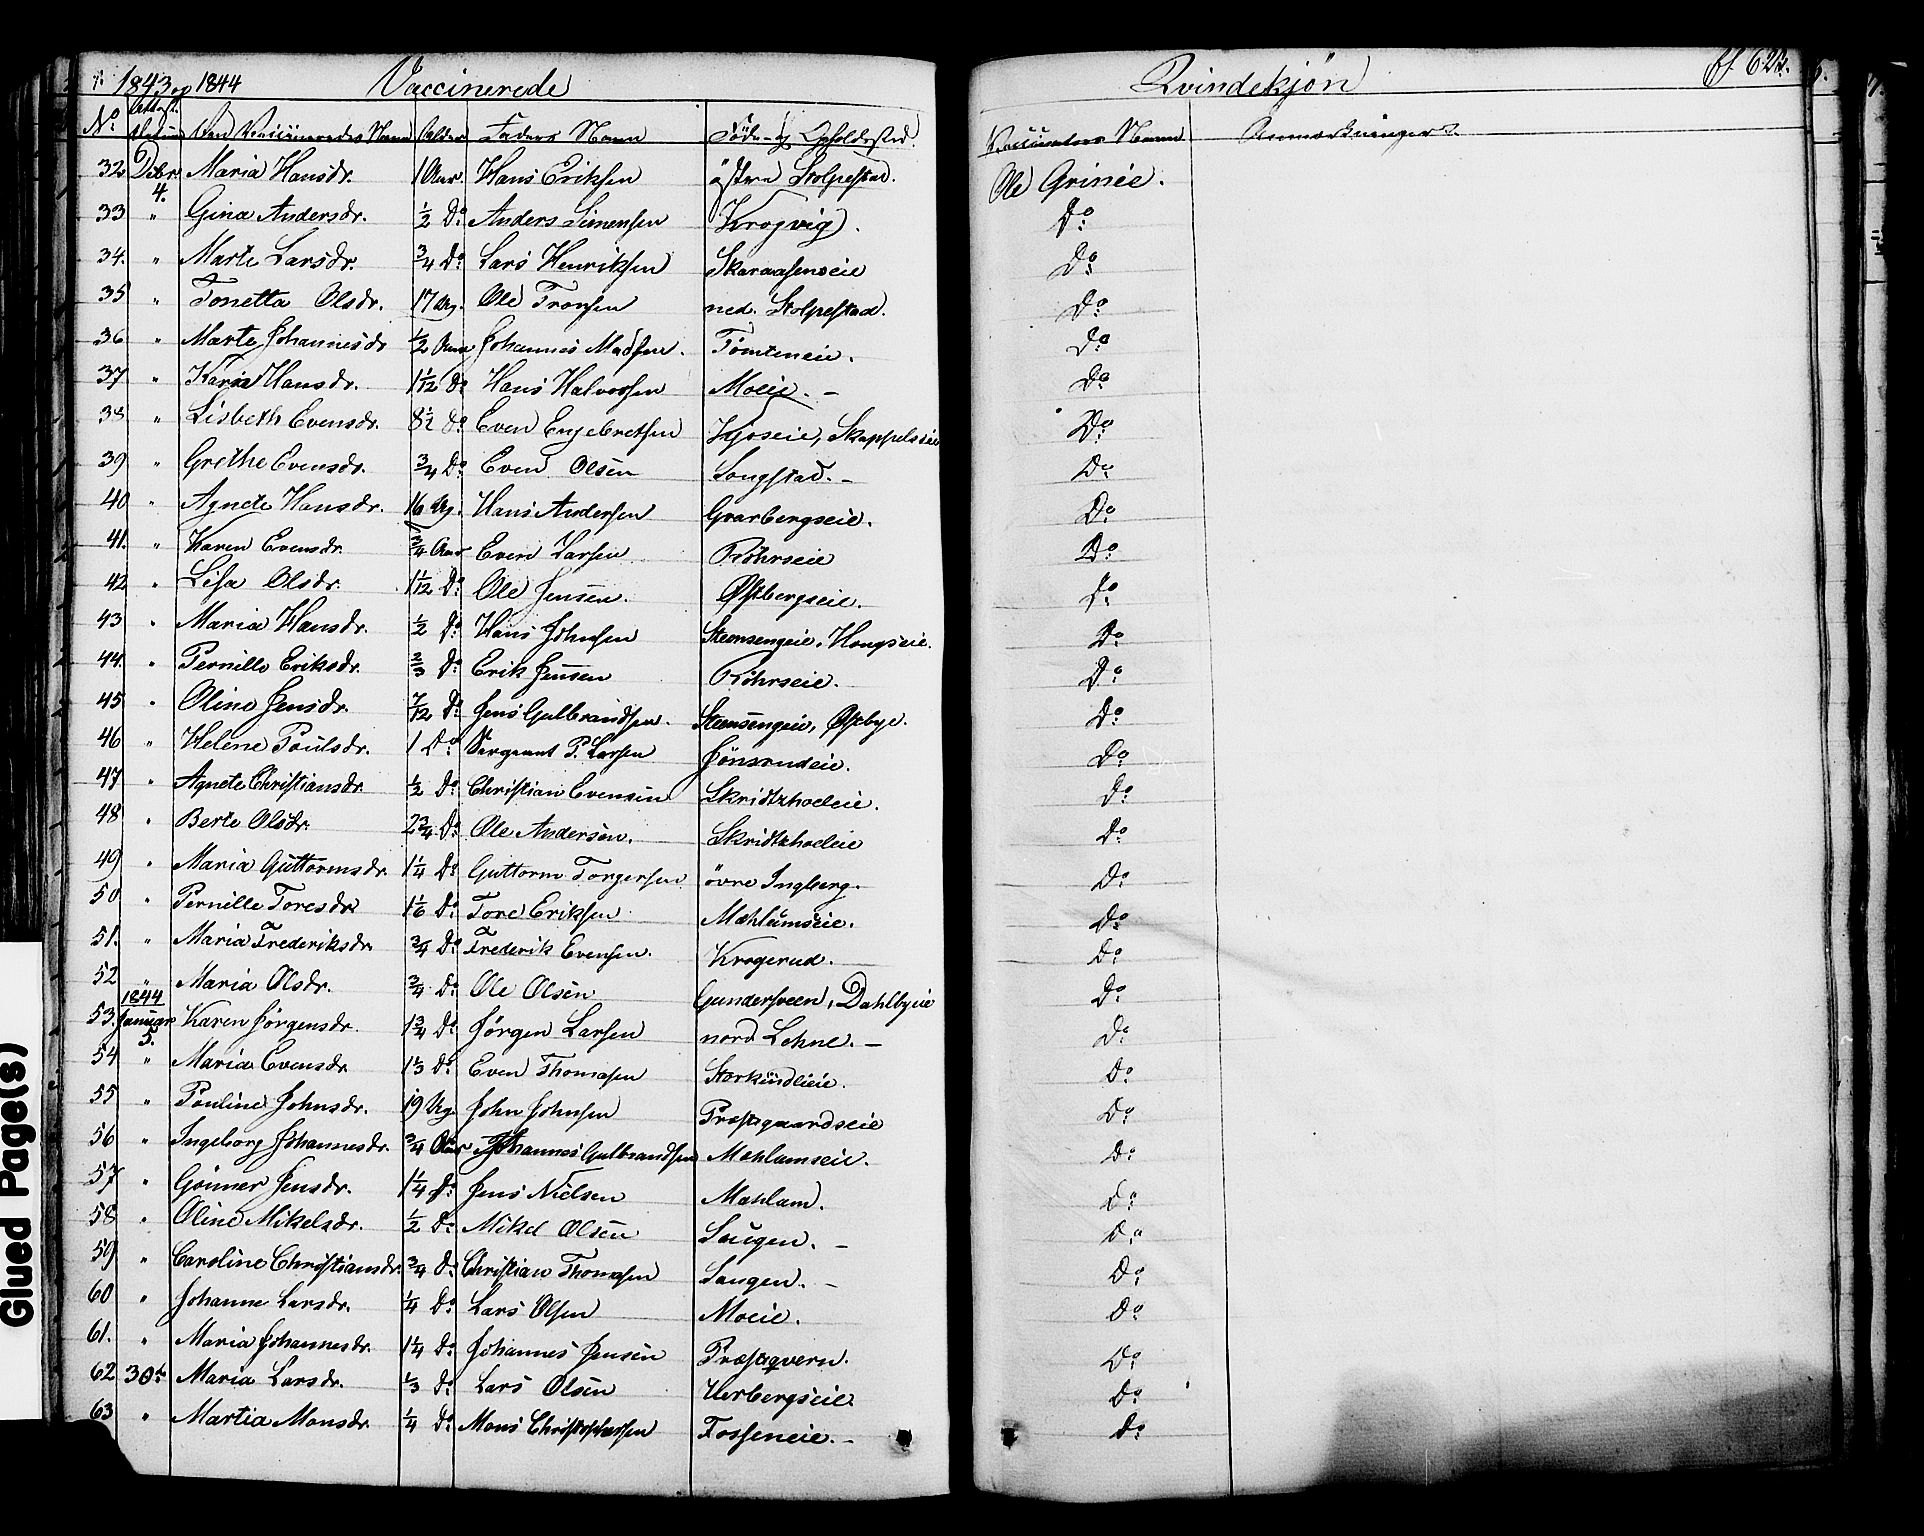 1843 og 1844 Vaccinerede Qvindekjön
No. Den Vaccineredes Navn Alder Faders Navn Föde- og Opholdssted. Vaccinators Navn Anmærkninger.
32 Decbr 4. Maria Hansdr. 1 Aar Hans Eriksen östre Stolpestad. Ole Grinie.
33 " Gina Andersdr. 1/2 Do. Anders Simensen Krogvig. Do.
34. " Marte Larsdr. 3/4 Do. Lars Henriksen Skaraaseneie Do.
35 " Tonetta Olsdr. 17 Ug. Ole Tronsen ned. Stolpestad. Do.
36 " Marte Johannesdr 1/2 Aar Johannes Madsen. Tomteneie. Do.
37 " Karia Hansdr. 1 1/12 Do Hans Halvorsen Moeie. - Do
38 " Lisbeth Evensdr. 8 1/2 Do Even Engebretsen Kjoseie, Skappelseie Do.
39 " Grethe Evensdr. 3/4 Do. Even Olsen Songstad. - Do.
40 " Agnete Hansdr. 16 Ug. Hans Andersen Graabergseie. Do.
41. " Karen Evensdr. 3/4 Aar Even Larsen Röhrseie Do.
42 " Lisa Olsdr. 1 1/12 Do. Ole Jensen. Østbergseie. Do.
43 " Maria Hansdr. 1/2 Do. Hans Johnsen Steensengeie, Hougseie. Do.
44. " Pernille Eriksdr. 2/3 Do. Erik Jensen Röhrseie. Do.
45 " Oline Jensdr. 7/12 Do. Jens Gulbrandsen. Steensengeie, Østbye. Do.
46 " Helene Poulsdr. 1 Do. Sergeant P. Larsen Jönsrudeie. Do.
47 " Agnete Christiansdr. 1/2 Do. Christian Evensen Skridtzhoeleie. Do.
48 " Berte Olsdr. 2 3/4 Do. Ole Andersen. Skridtzhoeleie Do.
49 " Maria Guttormsdr. 1 1/4 Do. Guttorm Torgersen övre Ingberg. Do.
50 " Pernille Toresdr. 1 1/6 Do. Tore Eriksen Mæhlumseie. Do.
51. " Maria Frederiksdr. 3/4 Do. Frederik Evensen. Krogerud. Do.
52 " Maria Olsdr. 3/4 Do. Ole Olsen Gundersveen, Dahlbyeie Do.
53. 1844 Januar 5. Karen Jörgensdr. 1 3/4 Do. Jörgen Larsen nord Lohne. - Do.
54 " Maria Evensdr. 1 1/3 Do. Even Thomasen Storkundlieie. Do.
55 " Pouline Johnsdr. 19 Ug. John Johnsen Præstgaardseie Do.
56 " Ingeborg Johannesdr. 3/4 Aar Johannes Gulbrandsen Mæhlumseie. Do.
57 " Gönner Jensdr. 1 1/4 Do. Jens Nielsen Mæhlum. Do.
58 " Oline Mikelsdr. 1/2 Do. Mikel Olsen Saugen. - Do.
59 " Caroline Christiansdr. 3/4 Do. Christian Thomasen Saugen. - Do.
60 " Johanne Larsdr. 1/4 Do. Lars Olsen Moeie. Do.
61. " Maria Johannesdr. 1 1/4 Do. Johannes Jensen Præstqvern. Do.
62 30te Maria Larsdr. 1/3 Do. Lars Olsen Herbergseie Do.
63 " Martia Monsdr. 1/4 Do. Mons Christophersen Fosseneie. - Do.
Glued Page(s)